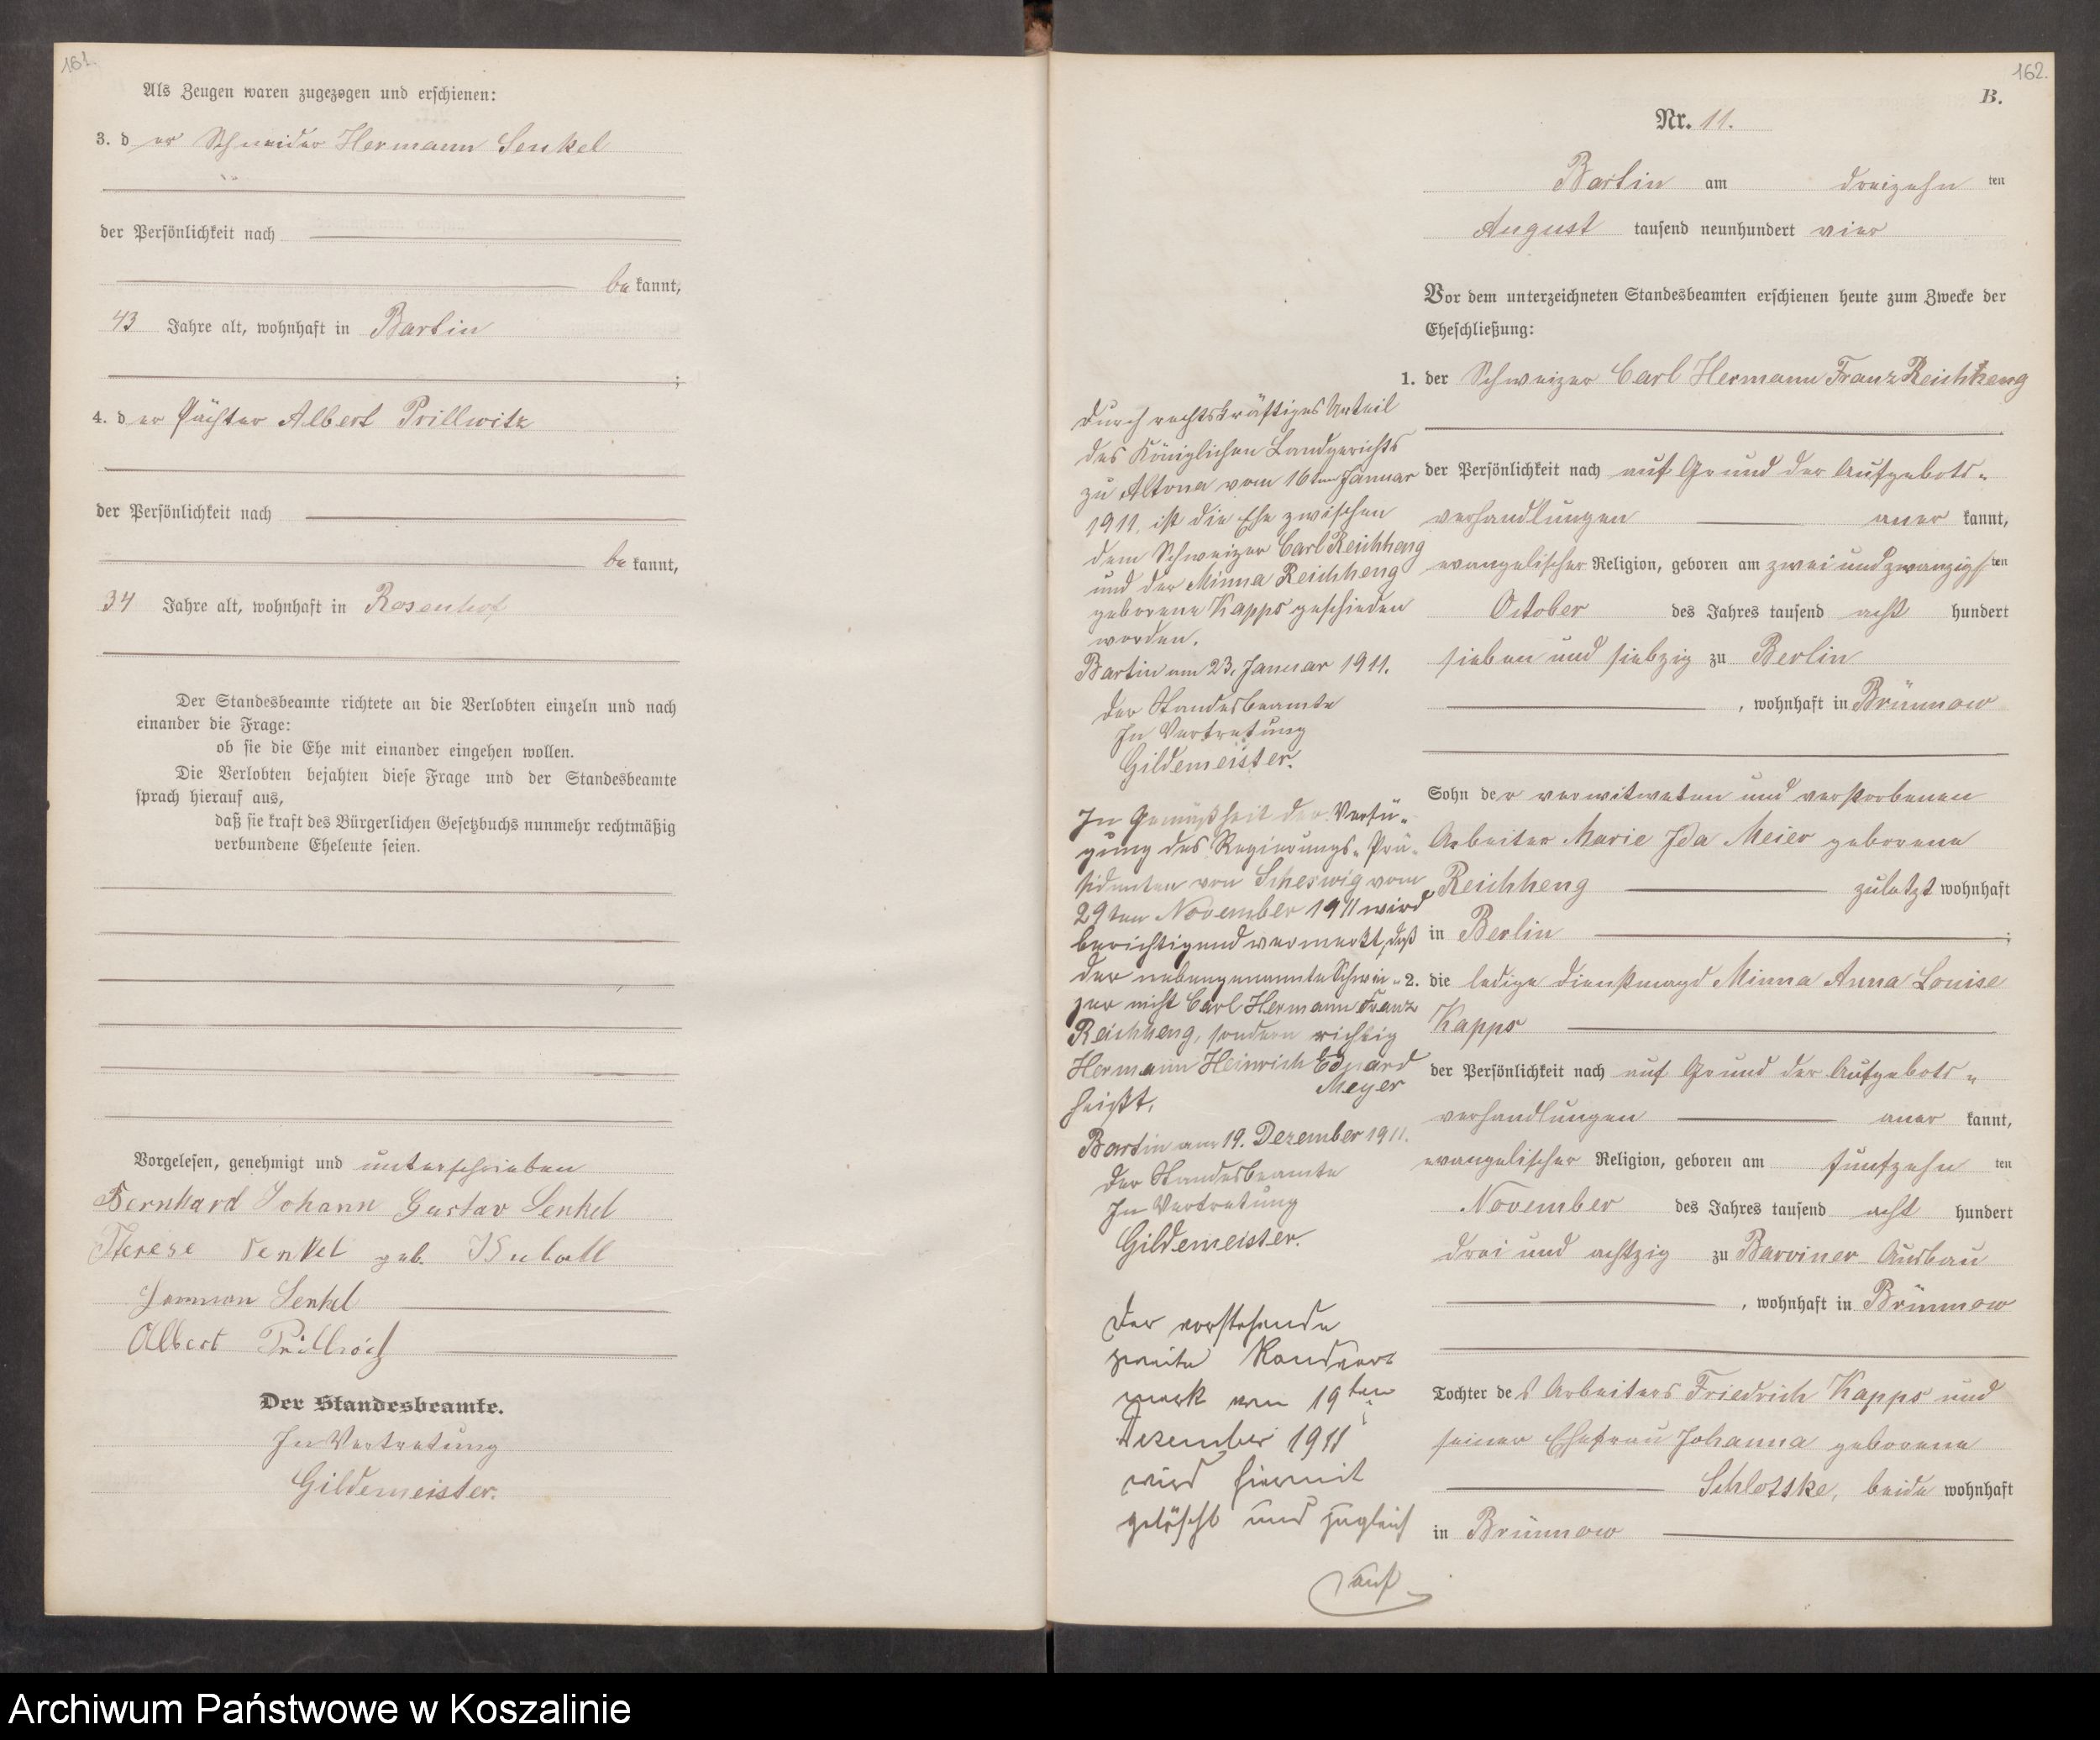 161.
Als Zeugen waren zugezogen und erschienen:
3. der Schneider Hermann Senkel
der Persönlichkeit nach
bekannt,
43 Jahre alt, wohnhaft in Bartin
;
4. der Pächter Albert Prillwitz
der Persönlichkeit nach
bekannt,
34 Jahre alt, wohnhaft in Rosenhof
Der Standesbeamte richtete an die Verlobten einzeln und nach
einander die Frage:
ob sie die Ehe mit einander eingehen wollen.
Die Verlobten bejahten diese Frage und der Standesbeamte
sprach hierauf aus,
daß sie kraft des Bürgerlichen Gesetzbuchs nunmehr rechtmäßig
verbundene Eheleute seien.
Vorgelesen, genehmigt und unterschrieben
Bernhard Johann Gustav Senkel
Therese Senkel geb.
Senkel
Albert
Der Standesbeamte.
In Vertretung
Gildemeister.
162.
B.
Nr. 11.
Bartin am dreizehnten
August tausend neunhundert vier
Vor dem unterzeichneten Standesbeamten erschienen heute zum Zwecke der
Eheschließung:
1. der Schweizer Carl Hermann Franz Reichheng
der Persönlichkeit nach auf Grund der Aufgebots-
verhandlungen anerkannt,
evangelischer Religion, geboren am zwei und zwanzigsten
October des Jahres tausend acht hundert
sieben und siebzig zu Berlin
, wohnhaft in Brünnow
Sohn der verwitweten und verstorbenen
Arbeiter Marie Ida Meier geborene
Reichheng zuletzt wohnhaft
in Berlin ;
2. die ledige Dienstmagd Minna Anna Louise
Kapps
der Persönlichkeit nach auf Grund der Aufgebots-
verhandlungen anerkannt,
evangelischer Religion, geboren am fünfzehnten
November des Jahres tausend acht hundert
drei und achtzig zu Barviner Ausbau
, wohnhaft in Brünnow
Tochter des Arbeiters Friedrich Kapps und
seiner Ehefrau Johanna geborene
Schlotske, beide wohnhaft
in Brünnow
Durch rechtskräftiges Urteil
des Königlichen Landgerichts
zu Altona vom 16ten Januar
1911, ist die Ehe zwischen
dem Schweizer Carl Reichheng
und der Minna Reichheng
geborene Kapps geschieden
worden.
Bartin am 23. Januar 1911.
Der Standesbeamte
In Vertretung
Gildemeister.
In Gemäßheit der Verfü-
gung des Regierungs-Prä-
sidenten von Scheswig vom
29ten November 1911 wird
berichtigend vermerkt, daß
der nebengenannte Schwei-
zer nicht Carl Hermann Franz
Reichheng, sondern richtig
Hermann Heinrich Eduard
Meyer
heißt.
Bartin am 19. Dezember 1911.
Der Standesbeamte
In Vertretung
Gildemeister.
Der vorstehende
zweite Randver-
merk vom 19ten
Dezember 1911
wird hiermit
gelöscht und zugleich
auf
Archiwum Państwowe w Koszalinie